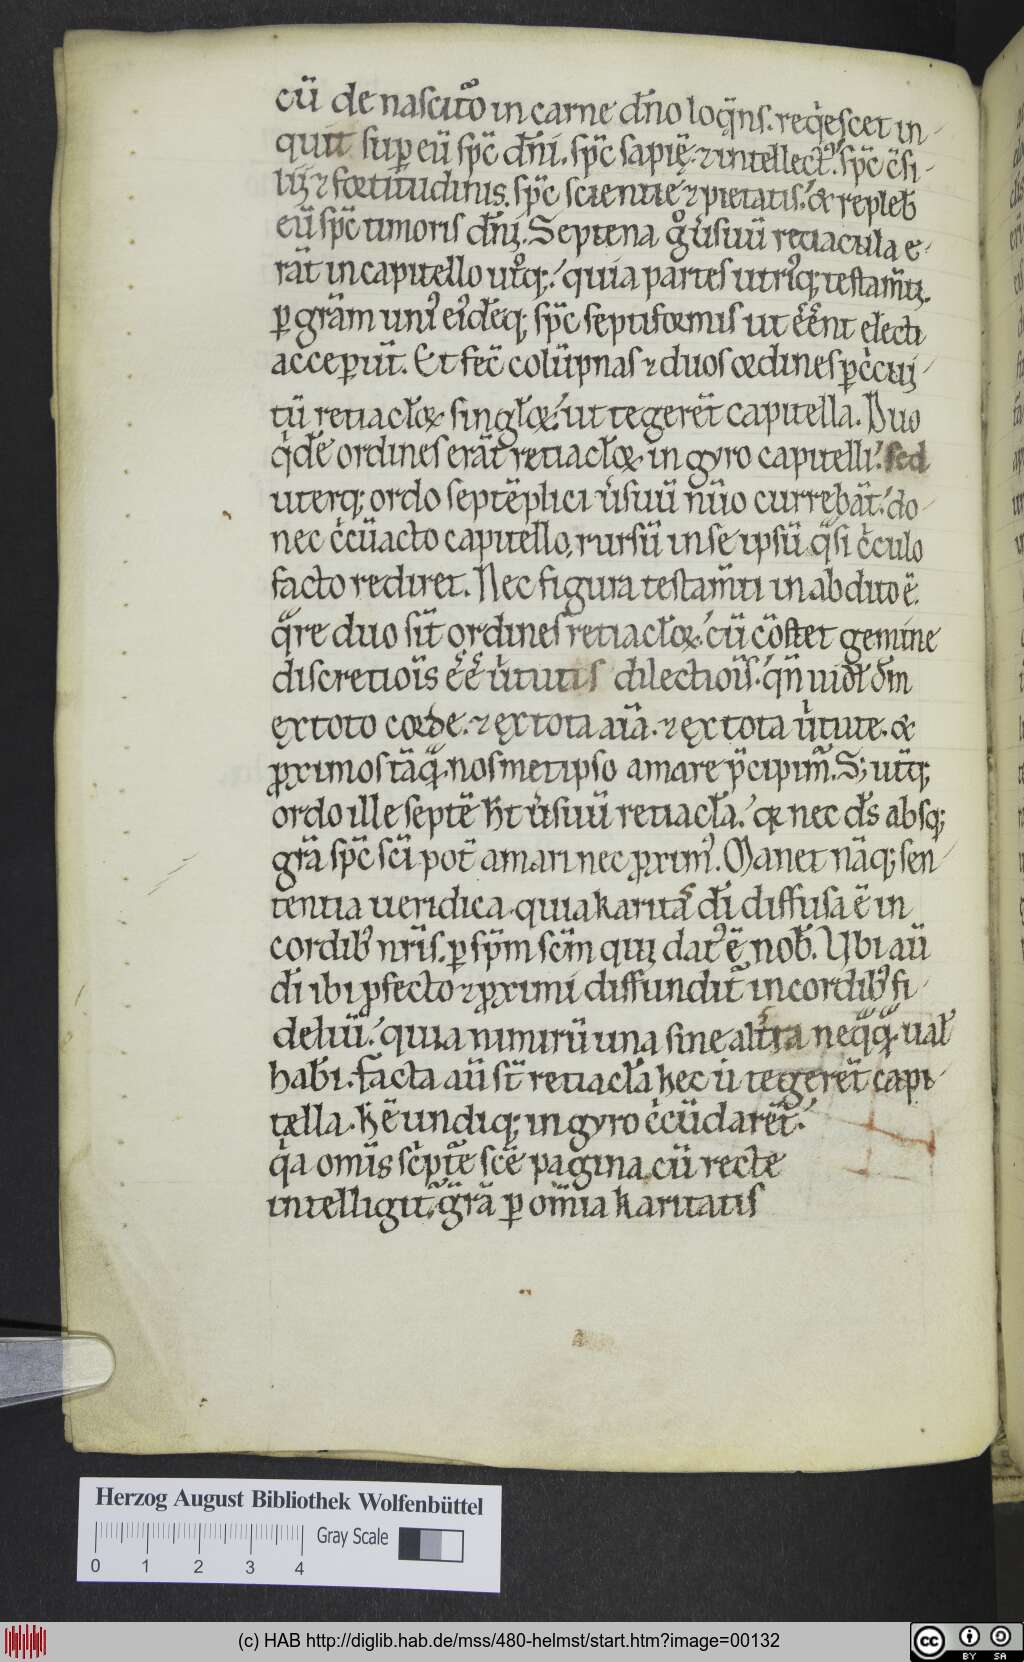 cū de nascit᷑o in carne dn̄o loq̄ns. req̇escet in-
quit sup eū sp̄c dn̄i. sp̄c sapię. ⁊ intellect᷑. sp̄c c̄si-
lij ⁊ fortitudinis. sp̄c scientie ⁊ pietatis. & repleb̄
eū sp̄c timoris dn̄j. Septena g̊ u̇suū retiacula e-
rāt in capitello ut̊q;. quia partes utri᷒q; testam̄tj.
ꝑ grām uni᷒ ei᷒deq; sp̄c septiformis ut ēēnt electi
acceperūt. Et fec̄ colūpnas ⁊ duos ordines p c̓cui-
tū retiacłoꝝ singłoꝝ. ut tegerēt capitella. Duo
q̇dē ordines erāt retiacłoꝝ in gyro capitelli. sed
uterq; ordo septēplici u̇suū nūo currebāt. do-
nec c̓cūacto capitello, rursū in se ipsū q̄si c̓culo
facto rediret. Nec figura testam̄ti in abdito ē.
q̄re duo sīt ordines retiacłoꝝ. cū cōstet gemine
discretiōis ēē u̇tutis dilectiōis. qn̄ uidł dm̄
ex toto corde. ⁊ ex tota aīa. ⁊ ex tota u̇tute. &
ꝓximos tāq̄. nosmetipso amare p̄cipim᷑. S; ut̄q;
ordo ille septē ht̄ u̇suū retiacła. qꝛ nec ds̄ absq;
grā sp̄c sc̄i pot̄ amari nec ꝓxim᷒. Manet nāq; sen-
tentia ueridica. quia karitas di̅ diffusa ē in
cordib᷒ nr̄is. ꝑ sp̄m sc̄m quj dat᷒ ē nob̄. Ubi aū
di̅ ibi ꝓfecto ⁊ ꝓximi diffundit᷑ in cordib᷒ fi-
deliū. quia nimirū una sine altra neq̄q̄ ual̄
hab̄i. facta aū st̄ retiacła hec ut tegerēt capi-
tella. h̄ ē undiq; in gyro c̓cūdarēt.
q̇a omīs sc̓ptē sc̄e pagina cū recte
intelligit᷑. grā ꝑ om̄ia karitatis
Herzog August Bibliothek Wolfenbüttel
Gray Scale
0 1 2 3 4
(c) HAB http://diglib.hab.de/mss/480-helmst/start.htm?image=00132
cc BY SA